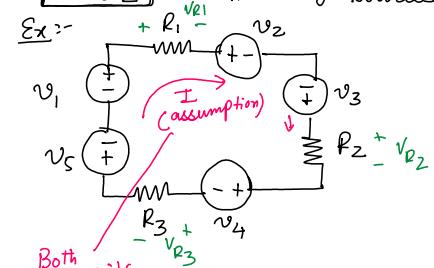 Ex :-
+ R1 VR1 -
V2
+ -
V1
+
-
I
(assumption)
-
+
V3
V5
-
+
R2 + - VR2
- +
R3
V4
- VR3 +
Both